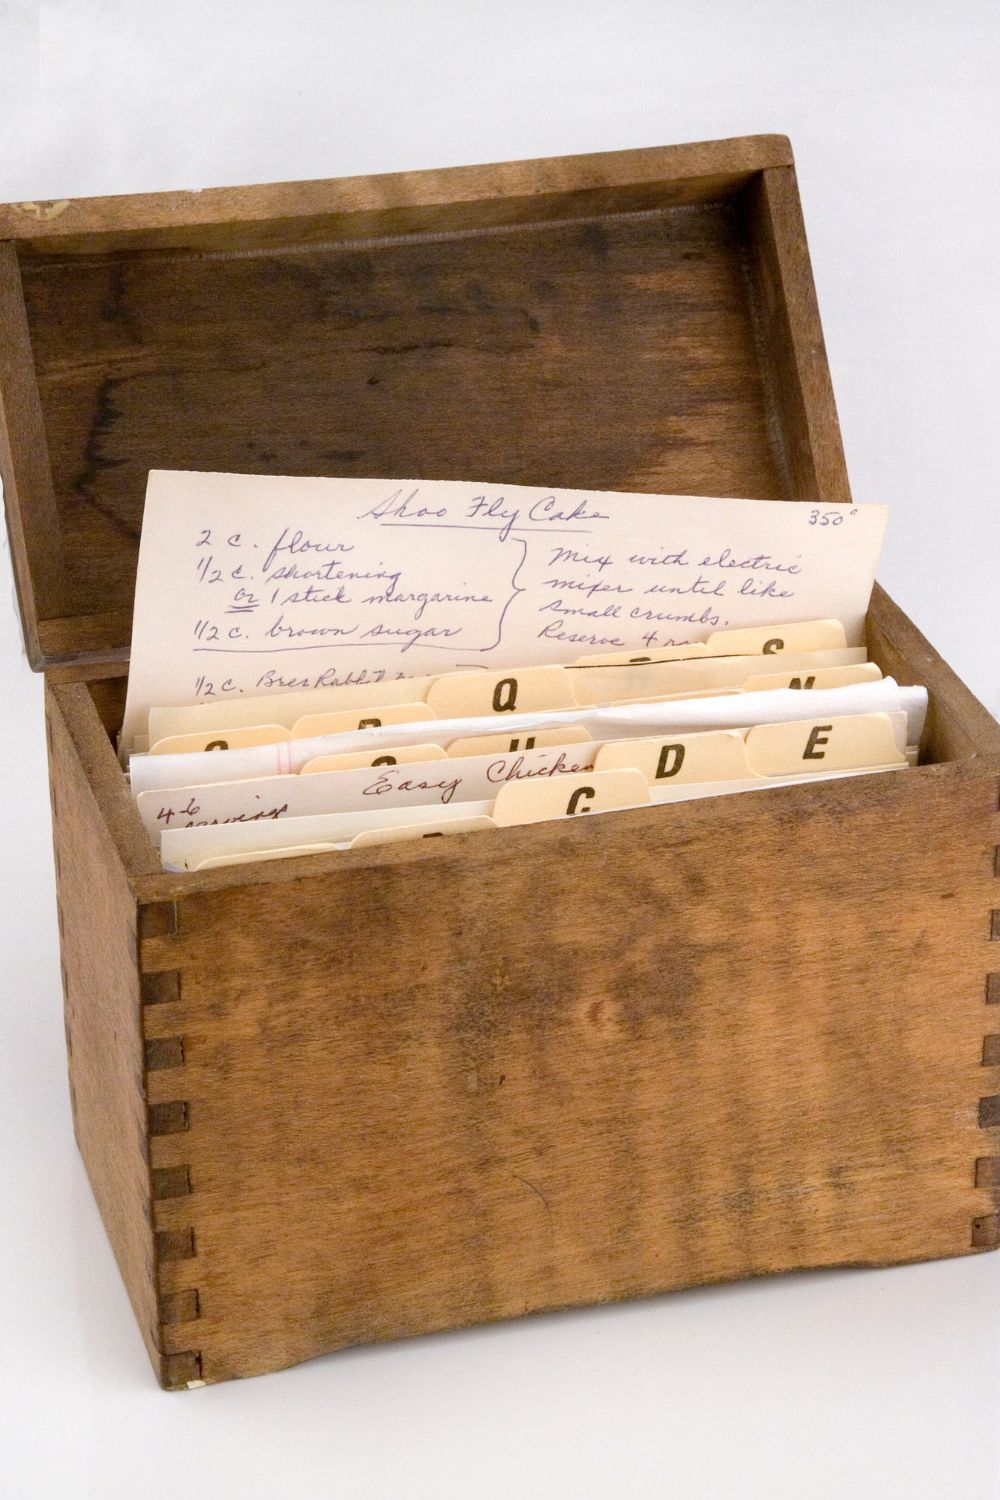 Shoo Fly Cake
350°
2 c. flour
1/2 c. shortening
or 1 stick margarine
1/2 c. brown sugar
Mix with electric
mixer until like
small crumbs.
Reserve 4
1/2 c. Brer Rabbit
S
Q
N
D
E
Easy Chicken
4-6
servings
C